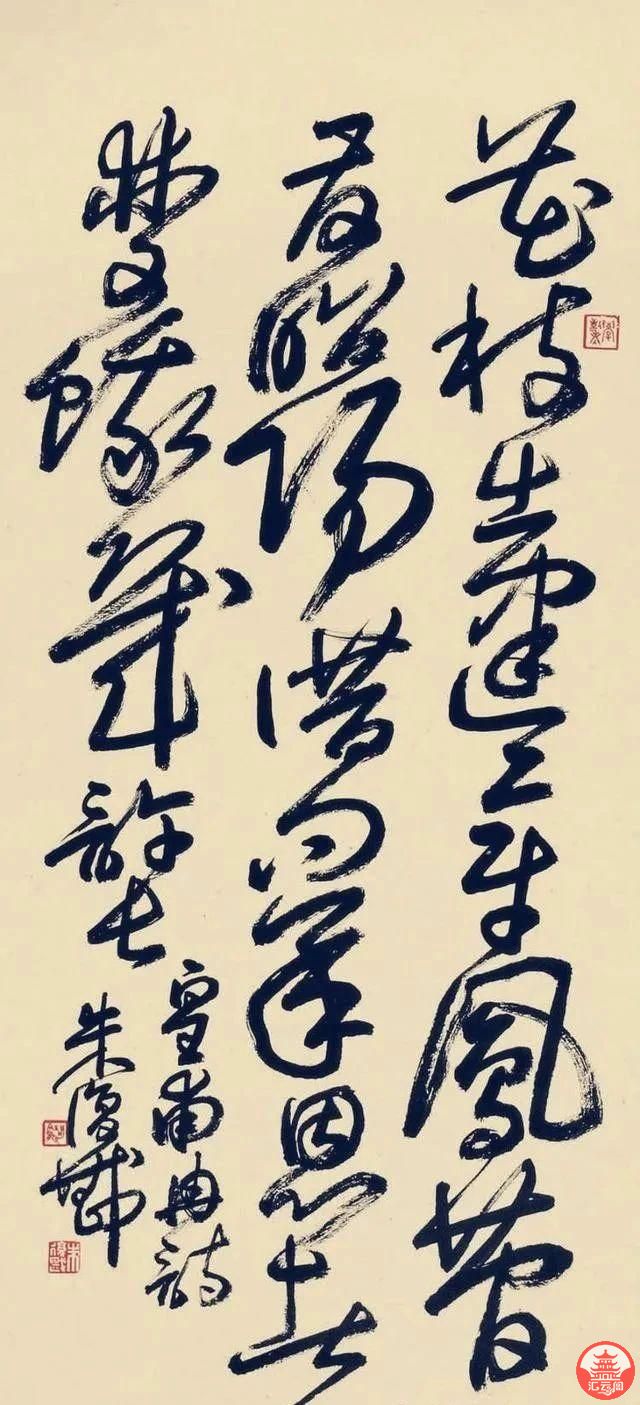 花枝出建章鳳管
發昭陽借問承恩者
雙蛾幾許長
皇甫冉詩
朱復戡
汇云阁